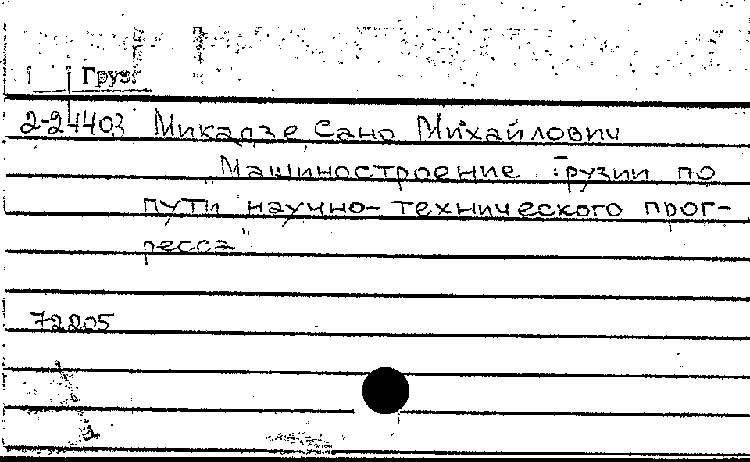 Груз
2-24403 Микадзе Сано Михайлович
„Машиностроение Грузии по
пути научно-технического прог-
ресса"
72205